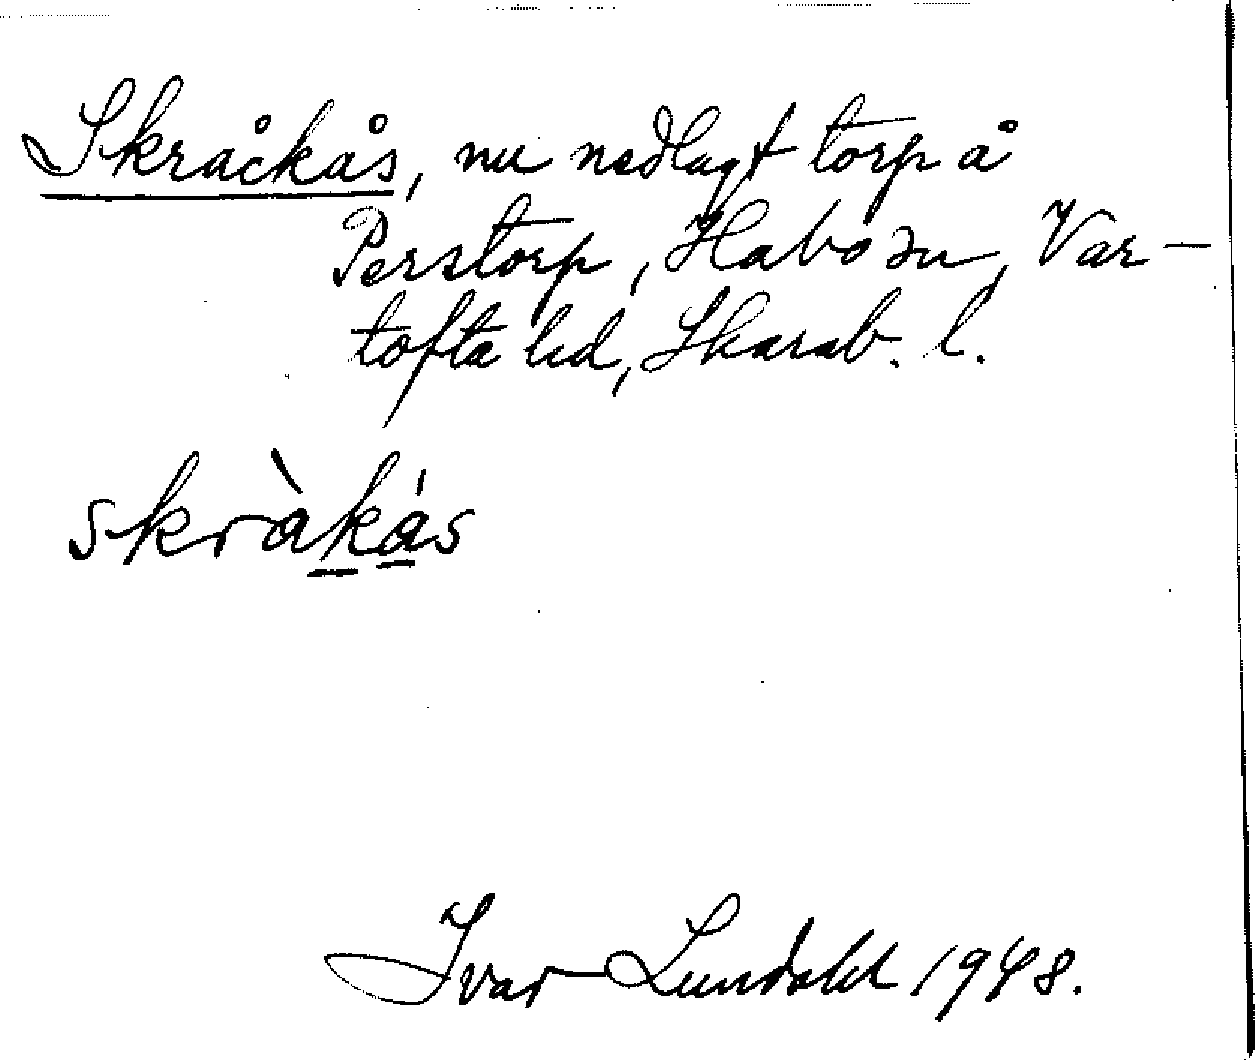 Skråckås, nu nedlagt torp å
Perstorp, Habo sn, Var-
tofta hd, Skarab. l.
skràkás
Ivar Lundahl 1948.